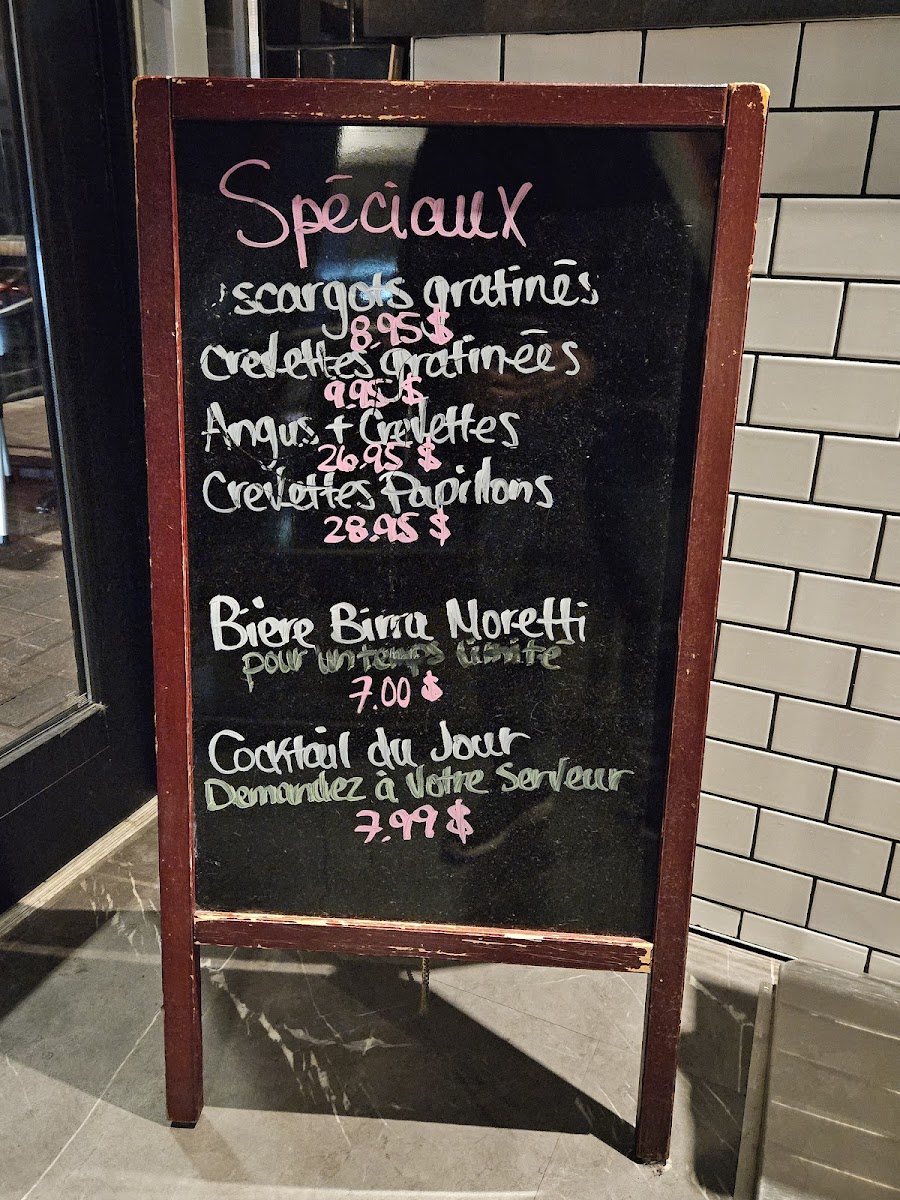 Spéciaux
scargots gratinés
8.95 $
Crevettes gratinées
9.95 $
Angus + Crevettes
26.95 $
Crevettes Papillons
28.95 $
Bière Birra Moretti
pour un temps limité
7.00 $
Cocktail du Jour
Demandez à Votre Serveur
7.99 $